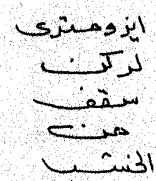 ايزومترى
لركن
سقف
من
الخشب